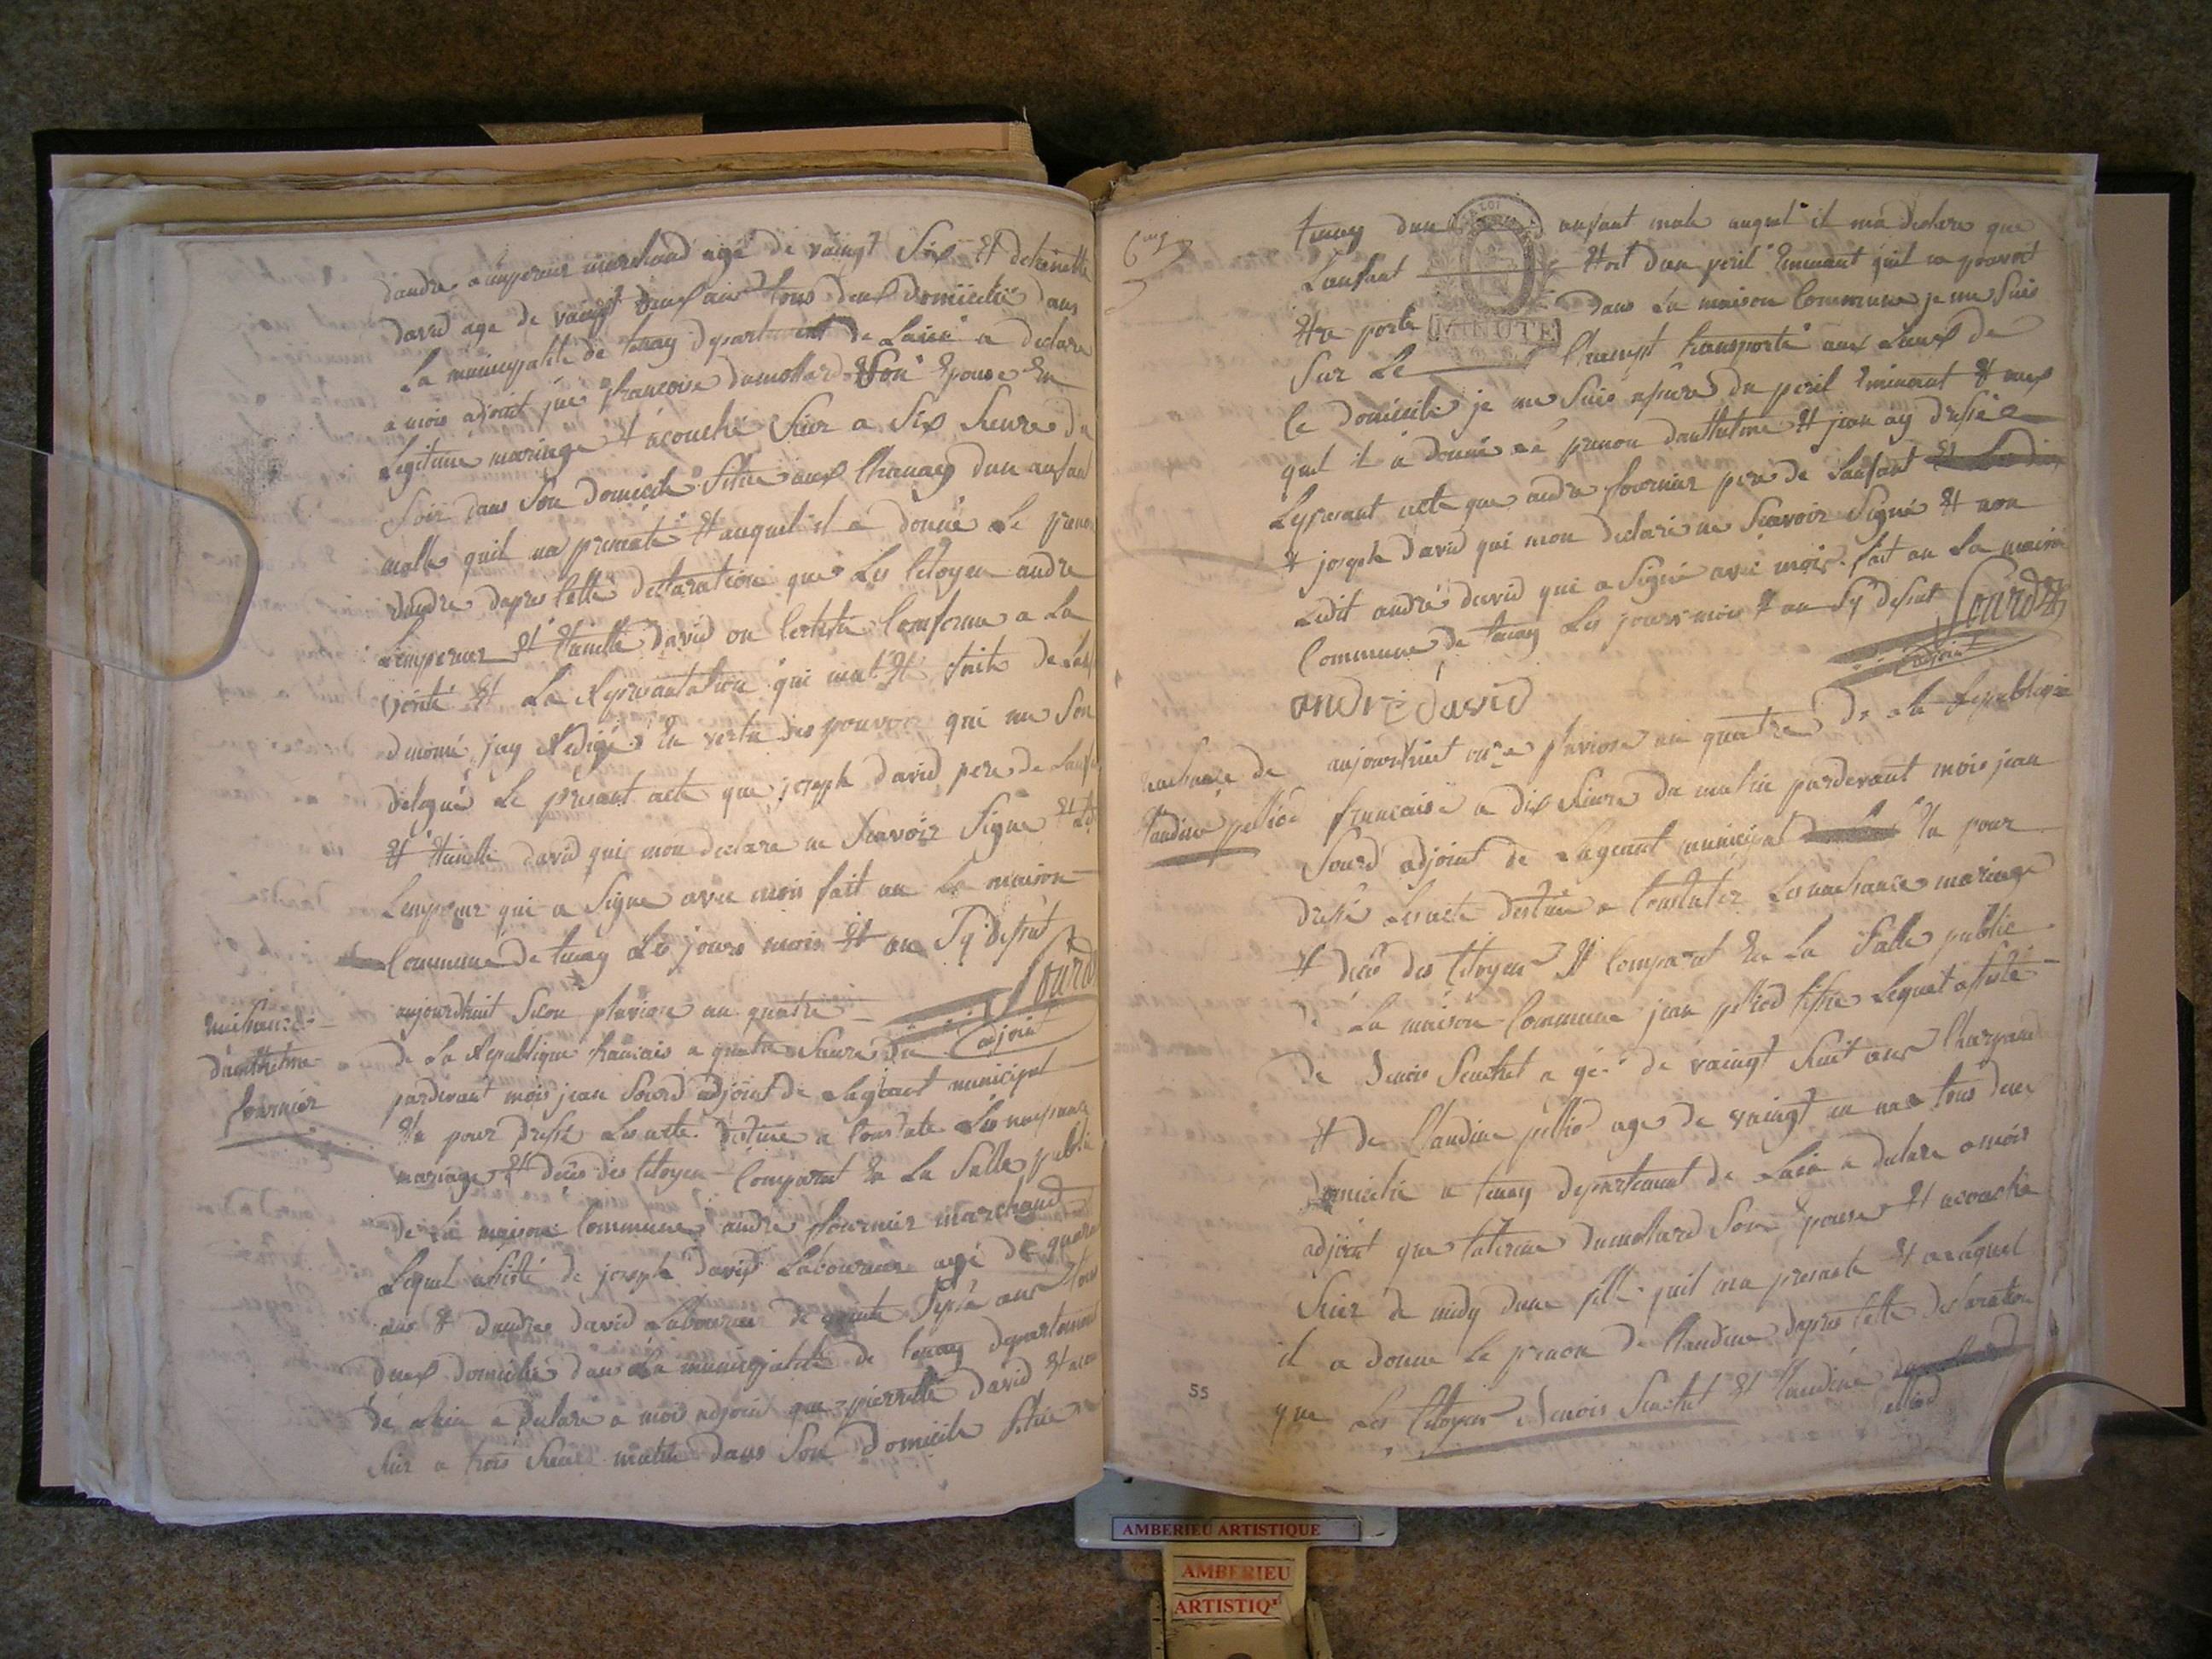 dandre lempereur marchand agé de vaingt Six Et detienette
david age de vaingt deux ans tous deux domicilié dans
La municipalité de tenay departement de Lain a declare
a mois adjoint que francoise dumollard Son Epouse En
Legitime mariage Et acouché hier a Six heure du
Soir dans Son domicile Sitüe aux Chanay dun anfant
malle quil ma presenté Et auquel il a donné Le prenon
dandre dapres Cette declaration que Les Citoyen andre
Lempereur Et Etienette david on Certifie Conforme a La
verité Et La Represantation qui mat Eté faite de Lanfant
denomé jay Redigé En vertu des pouvoir qui me Son
delegué Le présant acte que joseph david pere de Lanfant
Et Etienette david qui mon declare ne Scavoir Signe Et Ledit
Lempereur qui a Signe avec mois fait en La maison
Commune de tenay Les jours mois Et an Sy dessut
Sourd
adjoint
naissance
danthelme
fournier
aujourdhuit pluviose an quatre
de La Republique francais a quatre heure du
pardevant mois jean Sourd adjoint de Lagent municipal
Elu pour dressé Les acte destiné a Constate Les naissance
mariage Et décés des Citoyen Comparut En La Salle public
de La maison Commune andre fournier marchand
Lequel assisté de joseph david Laboureur agé de quarante
ans Et dandre david Laboureur de trente Sept ans tous
deux domicilié dans La municipalité de tenay departement
de Lain a declaré a mois adjoint que pierrette david Et acouché
hier a trois heure matin dans Son domicile Sitüe a
tenay dun anfant male auquel il ma declare que
MINUTE
Lanfant Etoit dun peril Eminant quil ne pouvoit
Etre porte dans La maison Commune je me Suis
Sur Le Champt transporté aux Lieux de
Ce domicile je me Suis assuré du peril Eminant Et
quel il a donné Le prenon danthelme Et jean ay dressé
Le presant acte que andre fournier pere de Lanfant
Et joseph david qui mon declaré ne Scavoir Signé Et non
Ledit andré david qui a Signé avec mois fait an La maison
Commune de tenay Les jours mois Et an Sy dessut Sourd
adjoint
andré david
naissance de
Claudine pelliod
aujourdhuit onze pluviose an quatre de La Republique
francaise a dix heure du matin pardevant mois jean
Sourd adjoint de Lageant municipal Elu pour
dressé Les acte destiné a Constater Les naissance mariage
Et décés des Citoyen Et Comparut En La Salle public
de La maison Commune jean pelliod Lequel assisté
de denois age de vaingt huit ans
Et de Claudine pelliod age de vaingt un ans tous deux
domicilié a tenay departement de Lain a declare a mois
adjoint que Caterine dumollard Son Epouse Et acouché
hier de midy dune fille quil ma presanté Et a Laquel
il a donne Le prenon de Claudine dapres Cette declaration
que Les Citoyen denois Et Claudine
pelliod
55
AMBERIEU ARTISTIQUE
AMBERIEU
ARTISTIQ